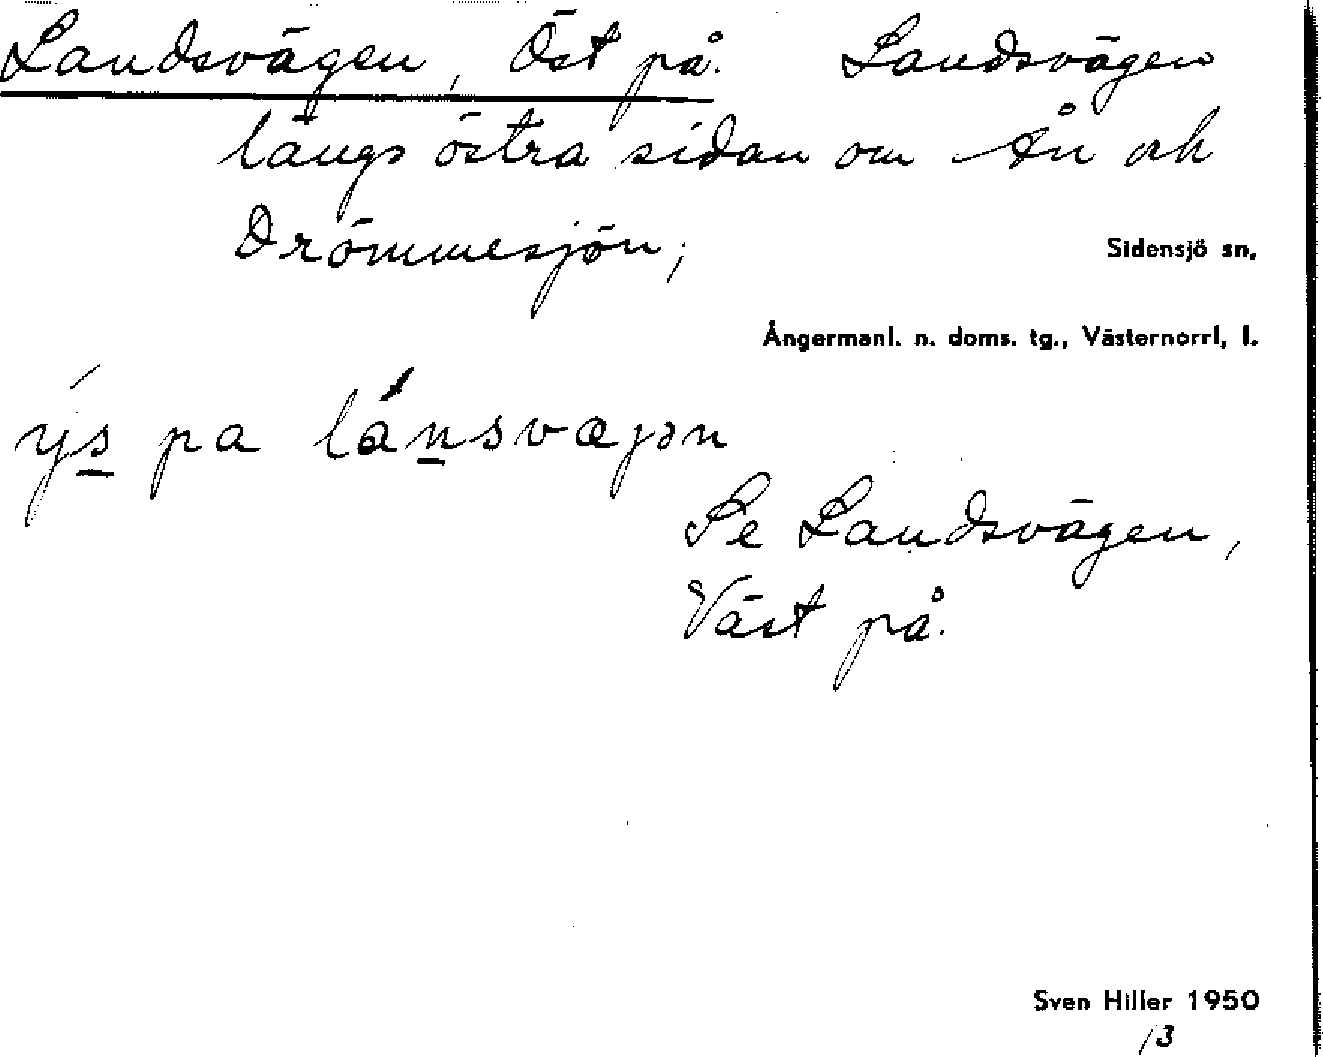 Landsvägen, Öst på. Landsvägen
längs östra sidan om Ån och
Drömmesjön;
Sidensjö sn,
Ångermanl. n. doms. tg., Västernorrl, l.
pa
Se Landsvägen,
Väst på.
Sven Hiller 1950
/3